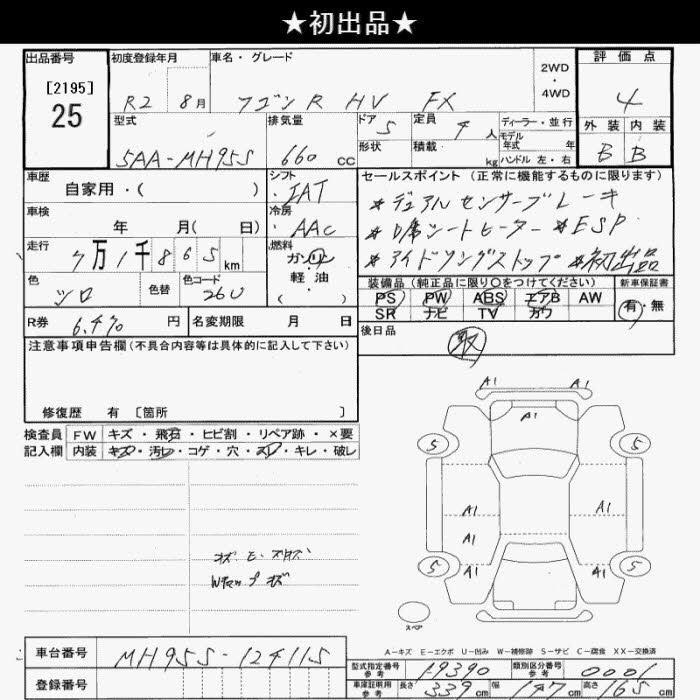 ★初出品★
出品番号 初度登録年月 車名・グレード 2WD・4WD 評価点
[2195]
25
R2 8月 ワゴンR HV FX 4
型式 排気量 ドア 5 定員 4人 ディーラー・並行 外装 内装
5AA-MH95S 660cc 形状 積載 kg モデル年式 年 ハンドル 左・右 B B
車歴 シフト セールスポイント(正常に機能するものに限ります)
自家用・( ) IAT ＊デュアルセンサーブレーキ
車検 年 月( 日) 冷房 AAC ＊D席シートヒーター ＊ESP
走行 7万1千865km 燃料 ガソリン ＊アイドリングストップ ＊初出品
軽油
・( )
色 シロ 色替 色コード 26U
装備品(純正品に限り○をつけてください) 新車保証書
PS PW ABS エアB AW 有・無
SR ナビ TV カワ
R券 6.470円 名変期限 月 日 後日品
取
注意事項申告欄(不具合内容等は具体的に記入して下さい)
修復歴 有 [箇所 ]
検査員 FW キズ・飛石・ヒビ割・リペア跡・×要
記入欄 内装 キズ・汚レ・コゲ・穴・スレ・キレ・破レ
A1 A1
A1
5 5
A1 A1
A1
5 A1 A1 5
スペア
A-キズ E-エクボ U-凹み W-補修跡 S-サビ C-腐食 XX-交換済
車台番号 MH95S-124115
登録番号
型式指定番号 参考 19390 類別区分番号 参考 0001
車庫証明用 参考 長さ 339cm 幅 147cm 高さ 165cm